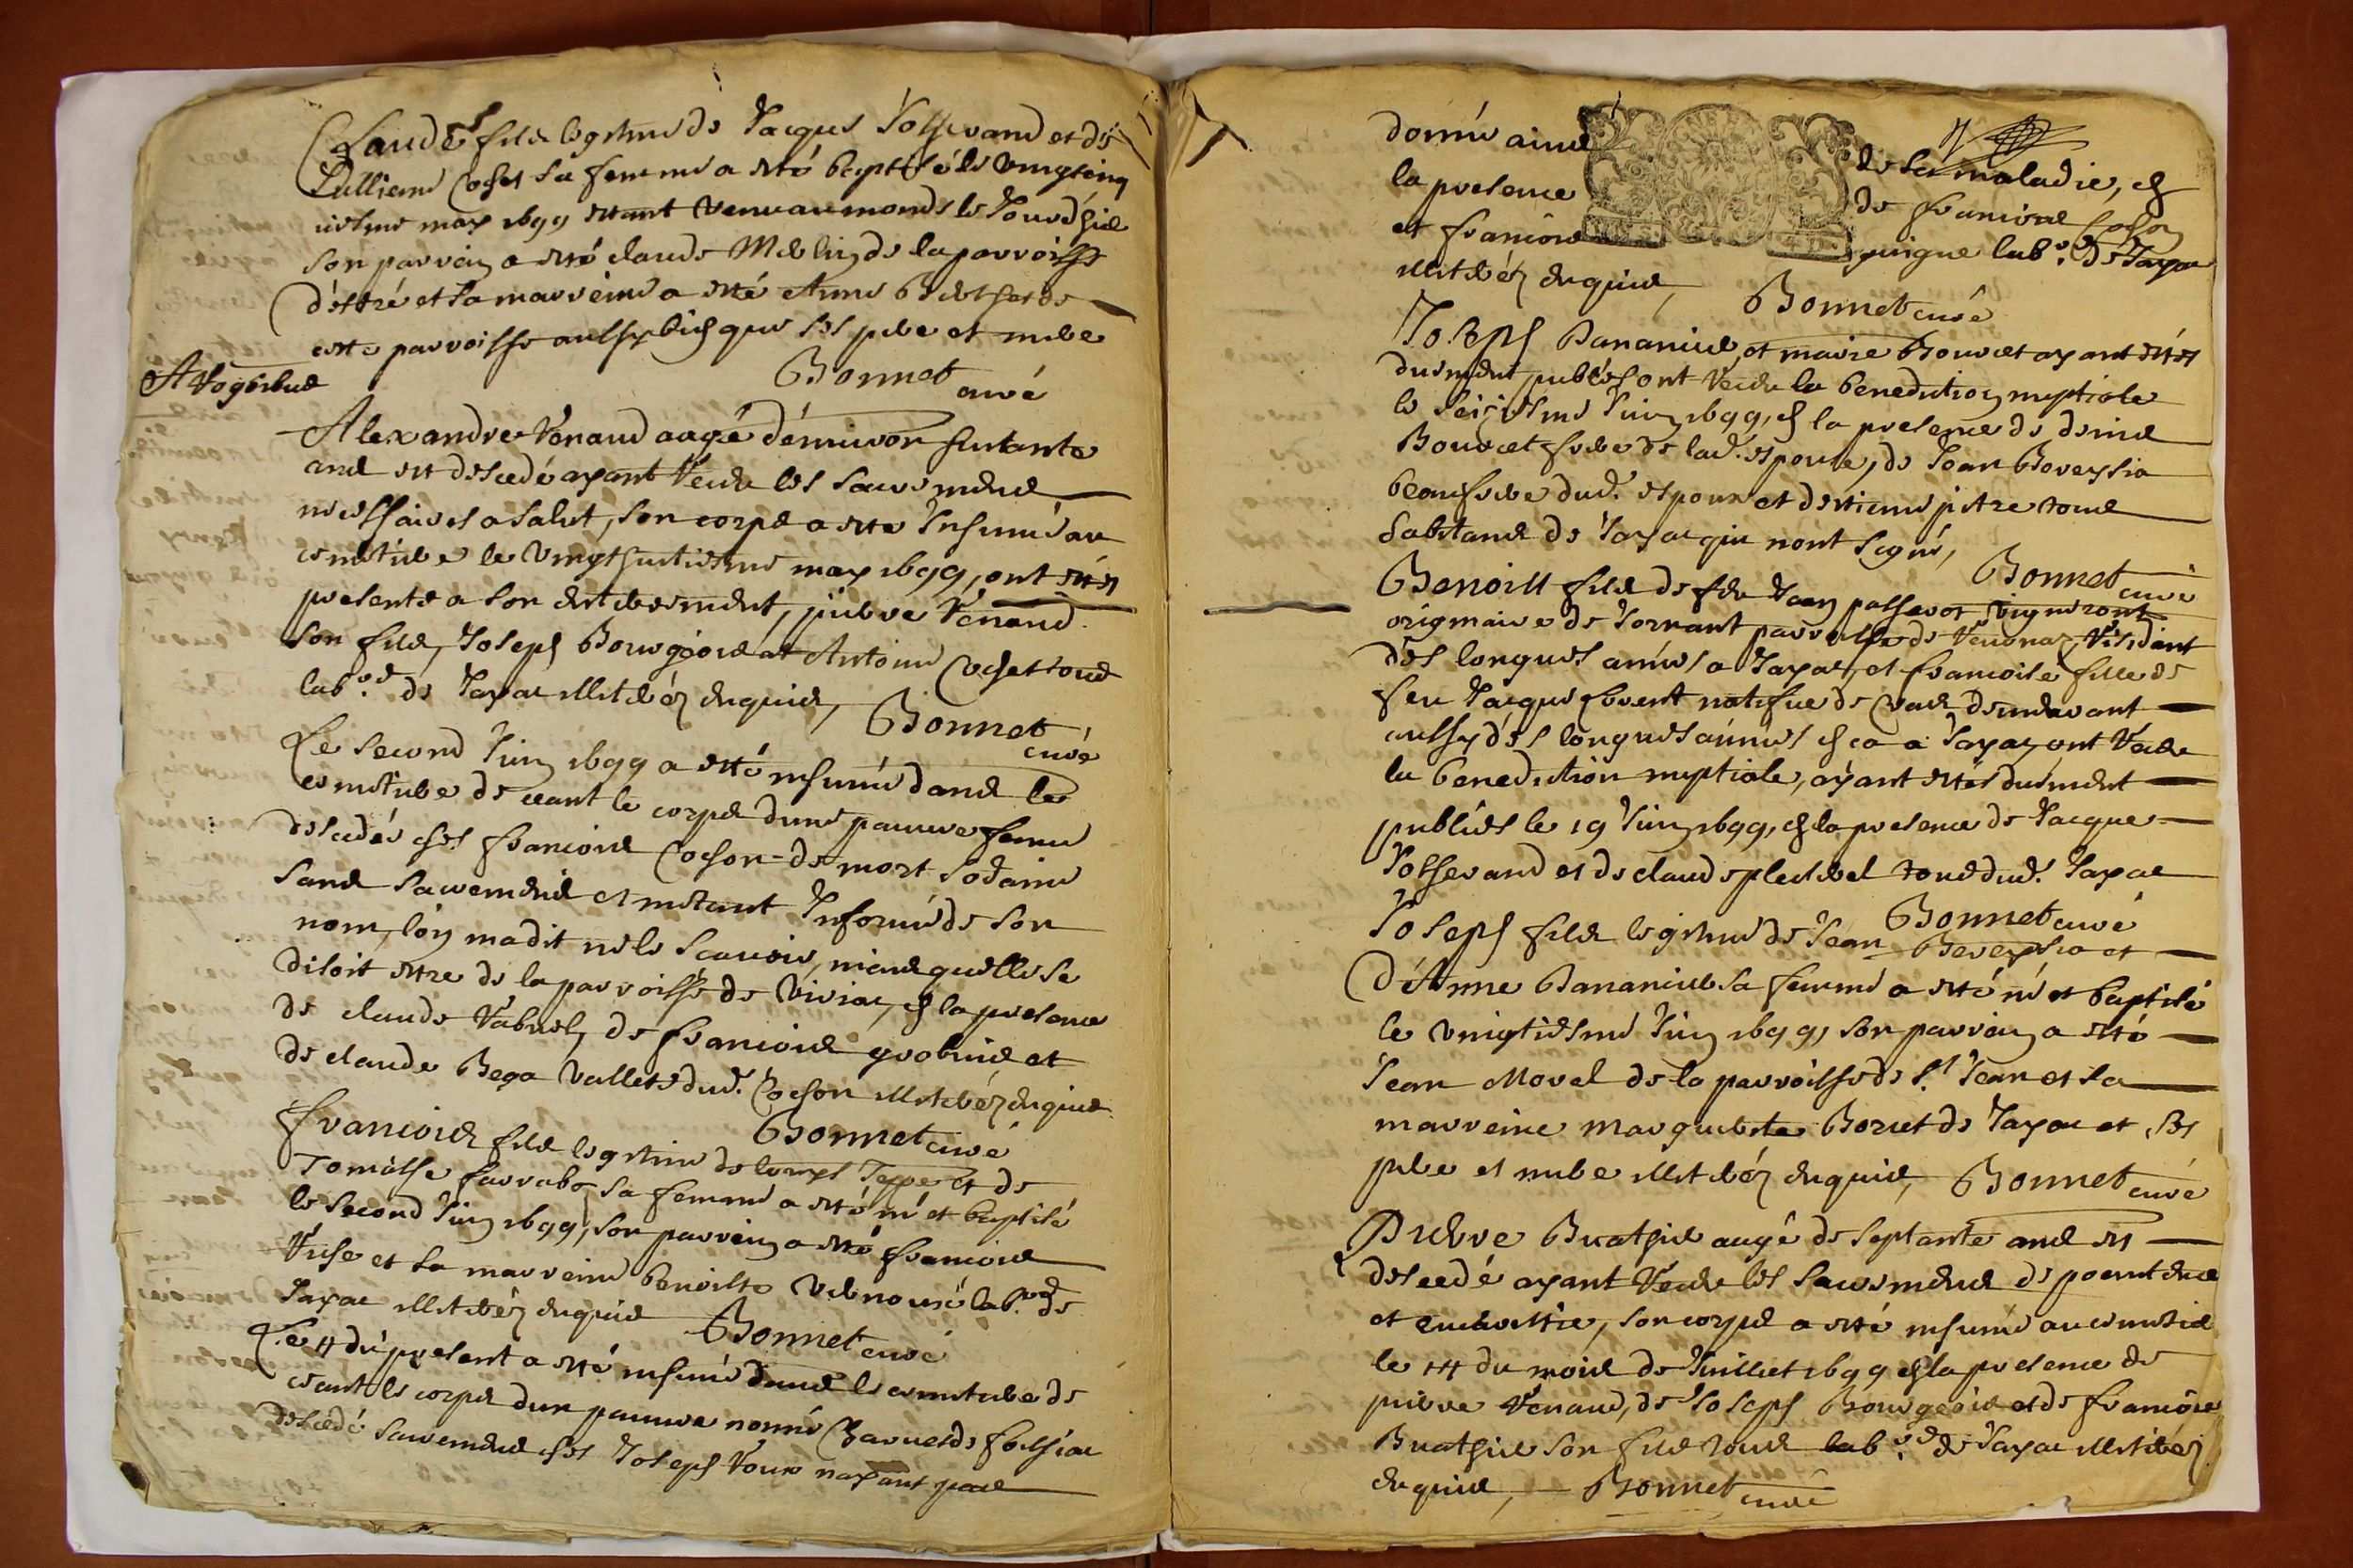 Claude fils legitime de Jacques Josserand et de
Jullienne Cochet sa femme a esté baptisé le vingtcinq
uiesme may 1699 estant venu au monde le jourdhuis
son parrain a esté claude Meslin de la parroisse
d'estré et sa marreine a esté Anne Berthet de
cette parroisse aussy bien que ses pere et mere
Bonnet curé
Alexandre Renaud aagé denviron septante
ans est decedé ayant receu les sacremens
necessaires a salut, son corps a este Inhumé au
cimetiere le vingthuictiesme may 1699, ont estés
presents a son enterrement, pierre Renaud
son fils, Joseph Bourgeois et Antoine Cochet tous
lab.rs de Jayac illiterés enquis, Bonnet
curé
Le second Juin 1699 a esté inhumé dans le
cimetiere de ceant le corps dune pauvre femme
decedée ches francois Cochon de mort sodaine
sans sacremens et mestant Informé de son
nom, lon ma dit ne le scavoir, mais quelle se
disoit estre de la parroisse de Viriac, en la presence
de claude Rabuel, de francois grobuis et
de claude Bega vallets dud. Cochon illiterés enquis
Bonnet curé
francois fils legitime de Louys Teppe et de
Tomasse farrabo sa femme a esté né et baptisé
le second Juin 1699, son parrain a esté francois
et sa marreine benoiste lab.rs de
Jayac illiterés enquis Bonnet curé
Le 4 du present a esté inhumé dans le cimetiere de
ceant le corps dun pauvre nommé de foissiac
decedé sacremens ches Joseph roux nayant que
dormi ains de sa maladie, en
la presence de francois Cochon
et francois lab.rs de Jayac
illiterés enquis, Bonnet curé
Joseph Bananies et marie Bouvet ayant estés
duement publiés ont receu la benediction nuptiale
le seiziesme Juin 1699, en la presence de denis
Bouvet frere de lad. espouse, de Jean Beveysia
beaufrere dud. espoux et destienne pitre tous
habitans de Jayac qui nont signé,
Bonnet curé
Benoist fils de feu Jean passerot vigneront
originaire de Tornant parroisse de Veronaz, residant
des longues années a Jayac, et francoise fille de
feu Jacques florent natifue de demeurant
aussy des longues années en ca a Jayac, ont receu
la benediction nuptiale, ayant estés duement
publiés le 19 Juin 1699, en la presence de Jacques
Josserand et de claude plestrel tous dud. Jayac
Bonnet curé
Joseph fils legitime de Jean Beveysia et
d'Anne Bananies sa femme a esté né et baptisé
le vingtiesme Juin 1699, son parrain a esté
Jean Morel de la parroisse de S.t Jean et sa
marreine marguerite Borset de Jayac et ses
pere et mere illiterés enquis, Bonnet curé
Pierre Buathier augé de septante ans est
decedé ayant receu les sacremens de poenitence
et eucharistie, son corps a esté inhumé au cimetier
le 14 du mois de Juillet 1699 en la presence de
pierre Renaud, de Joseph Bourgeois et de francois
Buathier son fils tous lab.rs de Jayac illiterés
enquis, Bonnet curé